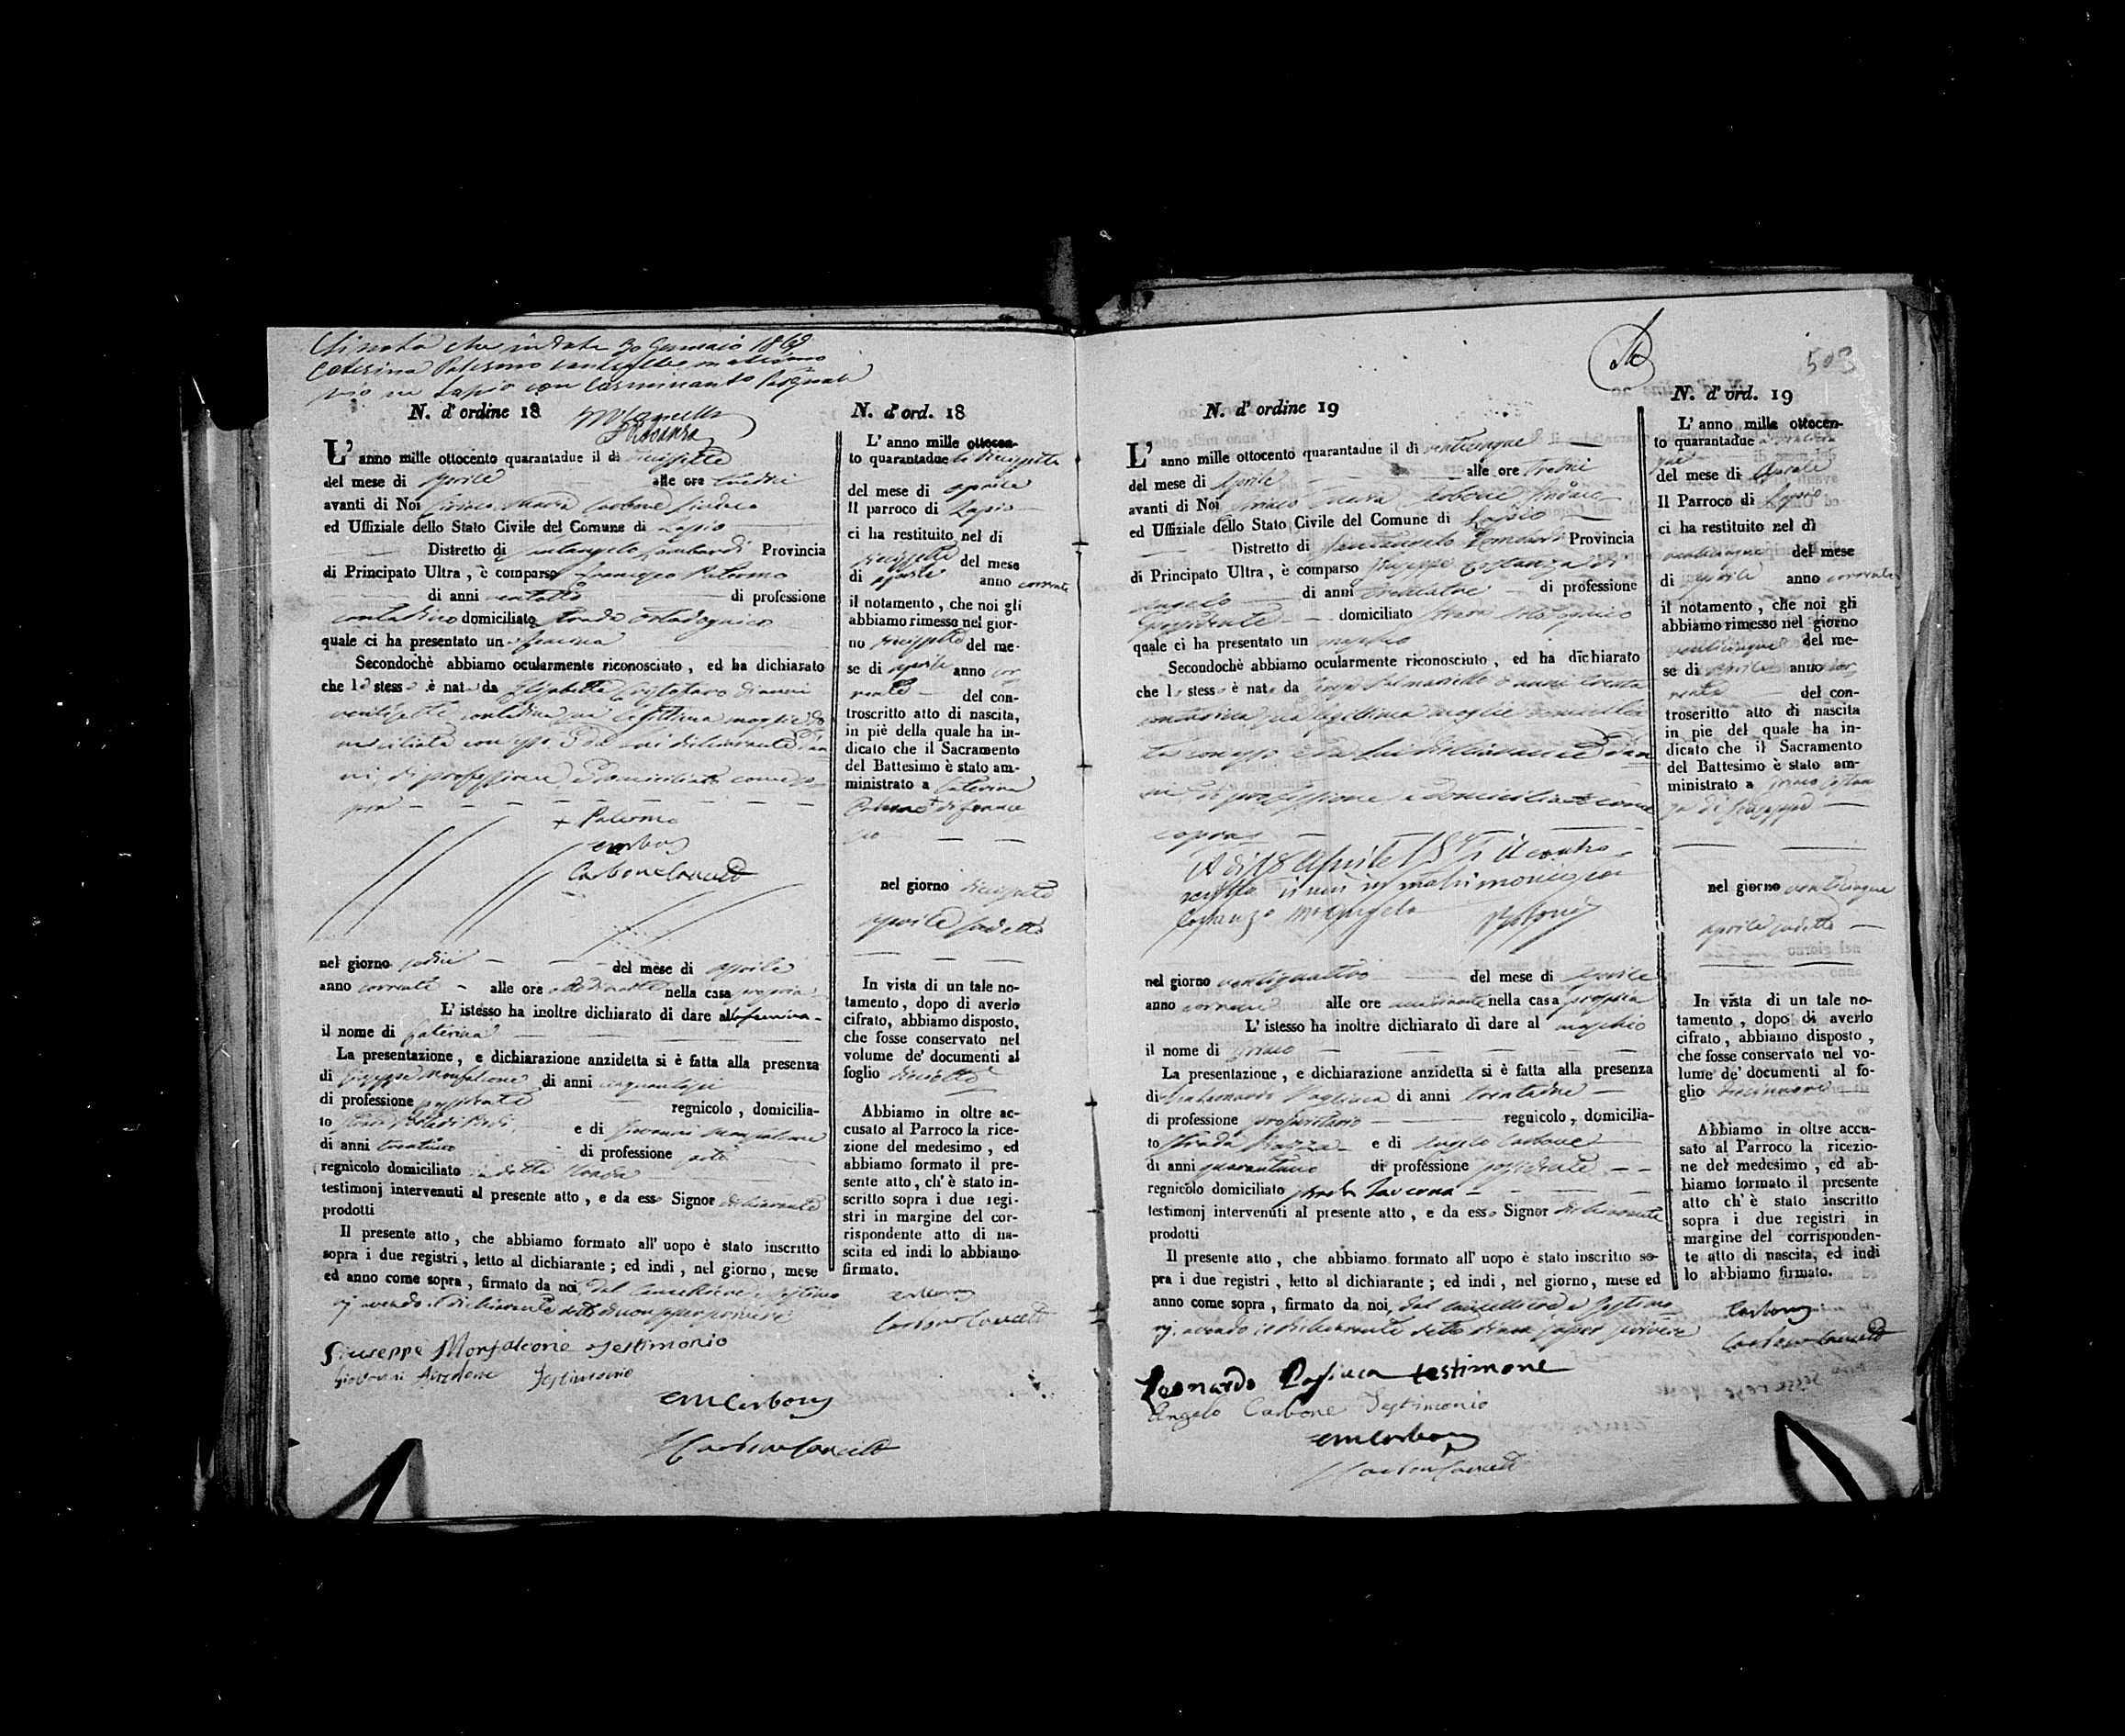 Si nota che in data 30 Gennaio 1868
Caterina Palermo
in Lapio con
N. d' ordine 18
L' anno mille ottocento quarantadue il dì diecissette
del mese di Aprile alle ore tredici
avanti di Noi Maria Carbone Sindaco
ed Uffiziale dello Stato Civile del Comune di Lapio
Distretto di Santangelo Lombardi Provincia
di Principato Ultra, è comparso Francesco Palermo
di anni ventotto di professione
contadino domiciliato strada
quale ci ha presentato un femina
Secondochè abbiamo ocularmente riconosciuto, ed ha dichiarato
che l stess è nat da Elisabetta di anni
ventisette contadina sua legittima moglie do
miciliata con esso e da lui dichiarante di an
ni, di professione e domiciliato come so
pra
+ Palermo
Carbone
Carbone Cancell
nel giorno sedici del mese di Aprile
anno corrente alle ore nella casa propria
L' istesso ha inoltre dichiarato di dare alla femina
il nome di Caterina
La presentazione, e dichiarazione anzidetta si è fatta alla presenza
di Giuseppe Monfalcone di anni cinquantasei
di professione possidente regnicolo, domicilia-
to e di Giovanni
di anni di professione
regnicolo domiciliato detta strada
testimonj intervenuti al presente atto, e da ess Signor dichiarante
prodotti
Il presente atto, che abbiamo formato all' uopo è stato inscritto
sopra i due registri, letto al dichiarante; ed indi, nel giorno, mese
ed anno come sopra, firmato da noi dal Cancelliere e testimo
nj avendo il dichiarante detto di non saper scrivere
Giuseppe Monfalcone testimonio
Giovanni testimonio
Carbone
Carbone Cancell
N. d' ord. 18
L' anno mille ottocen-
to quarantadue li diecissette
del mese di Aprile
Il parroco di Lapio
ci ha restituito nel dì
diecissette del mese
di Aprile anno corrente
il notamento, che noi gli
abbiamo rimesso nel gior-
no diecissette del me-
se di Aprile anno cor
rente del con-
troscritto atto di nascita,
in piè della quale ha in-
dicato che il Sacramento
del Battesimo è stato am-
ministrato a Caterina
Palermo di France
sco
nel giorno diecissette
Aprile sudetto
In vista di un tale no-
tamento, dopo di averlo
cifrato, abbiamo disposto,
che fosse conservato nel
volume de' documenti al
foglio diciotto
Abbiamo in oltre ac-
cusato al Parroco la rice-
zione del medesimo, ed
abbiamo formato il pre-
sente atto, ch' è stato in-
scritto sopra i due regi-
stri in margine del cor-
rispondente atto di na-
scita ed indi lo abbiamo
firmato.
Carbone
Carbone Cancell
503
N. d' ordine 19
L' anno mille ottocento quarantadue il dì venticinque
del mese di Aprile alle ore tredici
avanti di Noi Maria Carbone Sindaco
ed Uffiziale dello Stato Civile del Comune di Lapio
Distretto di Santangelo Lombardi Provincia
di Principato Ultra, è comparso Giuseppe Costanza di
Angelo di anni di professione
possidente domiciliato
quale ci ha presentato un maschio
Secondochè abbiamo ocularmente riconosciuto, ed ha dichiarato
che l stess è nat da di anni trenta
contadina sua legittima moglie domicilia
ta con esso e da lui dichiarante di an
ni, di professione e domiciliato come
sopra
A dì 18 Aprile il contro
scritto si unì in matrimonio con
Costanza Mª Angela
nel giorno ventiquattro del mese di Aprile
anno corrente alle ore nella casa propria
L' istesso ha inoltre dichiarato di dare al maschio
il nome di
La presentazione, e dichiarazione anzidetta si è fatta alla presenza
di Leonardo di anni trentadue
di professione proprietario regnicolo, domicilia-
to strada Piazza e di Angelo Carbone
di anni di professione possidente
regnicolo domiciliato strada Taverna
testimonj intervenuti al presente atto, e da ess Signor dichiarante
prodotti
Il presente atto, che abbiamo formato all' uopo è stato inscritto so-
pra i due registri, letto al dichiarante; ed indi, nel giorno, mese ed
anno come sopra, firmato da noi, dal Cancelliere e testimo
nj avendo il dichiarante detto di non saper scrivere
Leonardo testimone
Angelo Carbone Testimonio
Carbone
Carbone Cancell
N. d' ord. 19
L' anno mille ottocen-
to quarantadue
del mese di Aprile
Il Parroco di Lapio
ci ha restituito nel dì
venticinque del mese
di Aprile anno corrente
il notamento, che noi gli
abbiamo rimesso nel giorno
venticinque del me-
se di Aprile anno cor
rente del con-
troscritto atto di nascita
in pie del quale ha in-
dicato che il Sacramento
del Battesimo è stato am-
ministrato a Costan
za di Giuseppe
nel giorno venticinque
Aprile sudetto
In vista di un tale no-
tamento, dopo di averlo
cifrato, abbiamo disposto,
che fosse conservato nel vo-
lume de' documenti al fo-
glio diecinnove
Abbiamo in oltre accu-
sato al Parroco la ricezio-
ne del medesimo, ed ab-
biamo formato il presente
atto ch' è stato inscritto
sopra i due registri in
margine del corrisponden-
te atto di nascita, ed indi
lo abbiamo firmato.
Carbone
Carbone Cancell